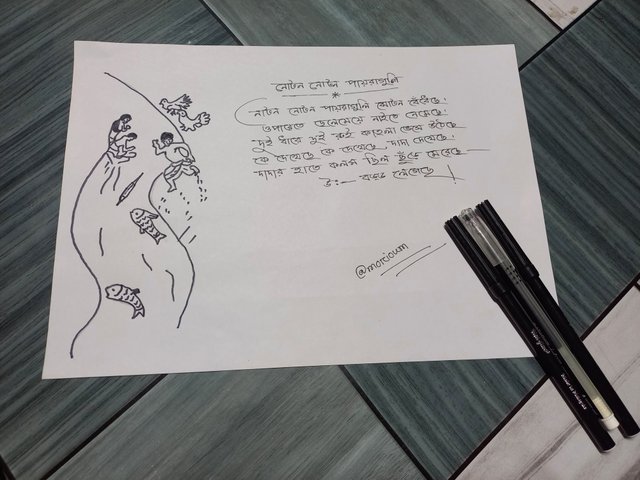 নোটন নোটন পায়রাগুলি
নোটন নোটন পায়রাগুলি ঝোটন বেঁধেছে!
ওপারেতে ছেলেমেয়ে নাইতে নেমেছে!
দুই ধারে দুই রুই কাতলা ভেসে উঠেছে
কে দেখেছে কে দেখেছে দাদা দেখেছে!
দাদার হাতে কলম ছিল ছুঁড়ে মেরেছে
উঃ— বড্ড লেগেছে!